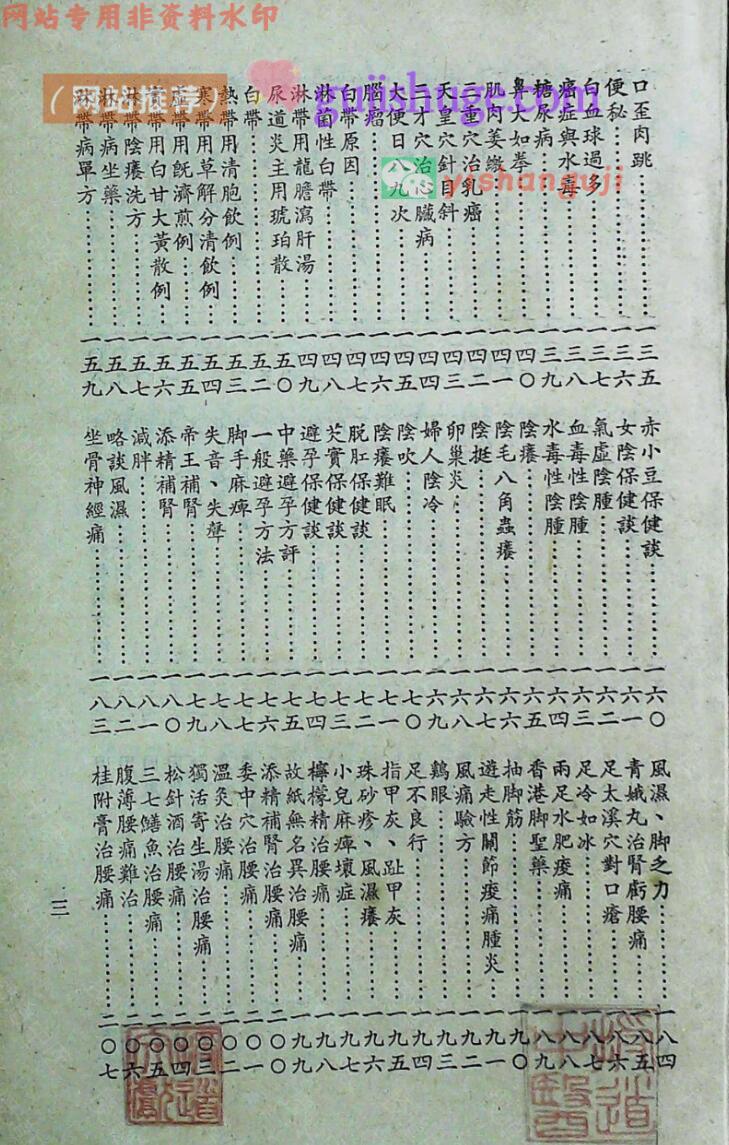 网站专用非资料水印
(网站推荐)
gujishuge.com
yishanguji
口歪肉跳……一三五
便秘……一三六
白血球過多……一三七
癌症與水毒……一三八
糖尿病……一三九
鼻大如拳……一四〇
肌肉萎縮……一四一
三重穴治乳癌……一四二
天皇穴針目斜……一四三
三才穴治心臟病……一四四
大便日八九次……一四五
腦瘤……一四六
白帶原因……一四七
淋菌性白帶……一四八
淋帶用龍膽瀉肝湯……一四九
尿道炎主用琥珀散……一五〇
白帶……一五二
熱帶用清胞飲例……一五三
寒帶用草解分清飲例……一五四
虛帶用既濟煎例……一五五
帶用白甘大黃散例……一五六
淋帶陰癢洗方……一五七
淋帶病坐藥……一五八
淋帶病單方……一五九
赤小豆保健談……一六〇
女陰保健談……一六一
氣虛陰腫……一六二
血毒性陰腫……一六三
水毒性陰腫……一六四
陰癢……一六五
陰毛八角蟲癢……一六六
陰挺……一六七
卵巢炎……一六八
婦人陰冷……一六九
陰吹……一七〇
陰癢難眠……一七一
脫肛保健談……一七二
芡實保健談……一七三
避孕保健談……一七四
中藥避孕方評……一七五
一般避孕方法……一七六
脚手麻痺……一七七
失音、失聲……一七八
帝王補腎……一七九
添精補腎……一八〇
減胖……一八一
略談風濕……一八二
坐骨神經痛……一八三
風濕、脚乏力……一八四
青娥丸治腎虧腰痛……一八五
足太溪穴對口瘡……一八六
足冷如冰……一八七
兩足水肥痠痛……一八八
香港脚聖藥……一八九
抽脚筋……一九〇
遊走性關節痠痛腫炎……一九一
風痛驗方……一九二
鷄眼……一九三
足不良行……一九四
指甲灰、趾甲灰……一九五
珠砂疹、風濕癢……一九六
小兒麻痺壞症……一九七
檸檬精治腰痛……一九八
故紙無名異治腰痛……一九九
添精補腎治腰痛……二〇〇
委中穴治腰痛……二〇一
溫灸治腰痛……二〇二
獨活寄生湯治腰痛……二〇三
松針酒治腰痛……二〇四
三七鱔魚治腰痛……二〇五
腹薄腰痛難治……二〇六
桂附膏治腰痛……二〇七
三